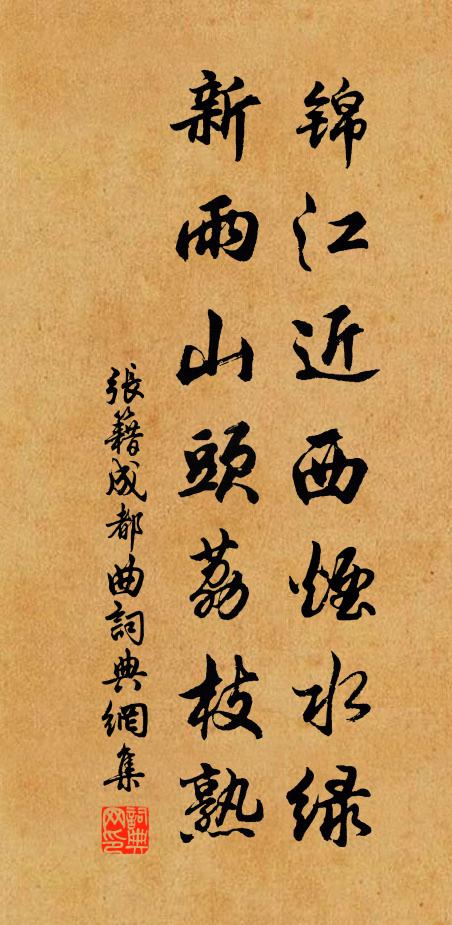 锦江近西煙水緑
新雨山頭荔枝熟
張籍成都曲詞典網集
詞典網印